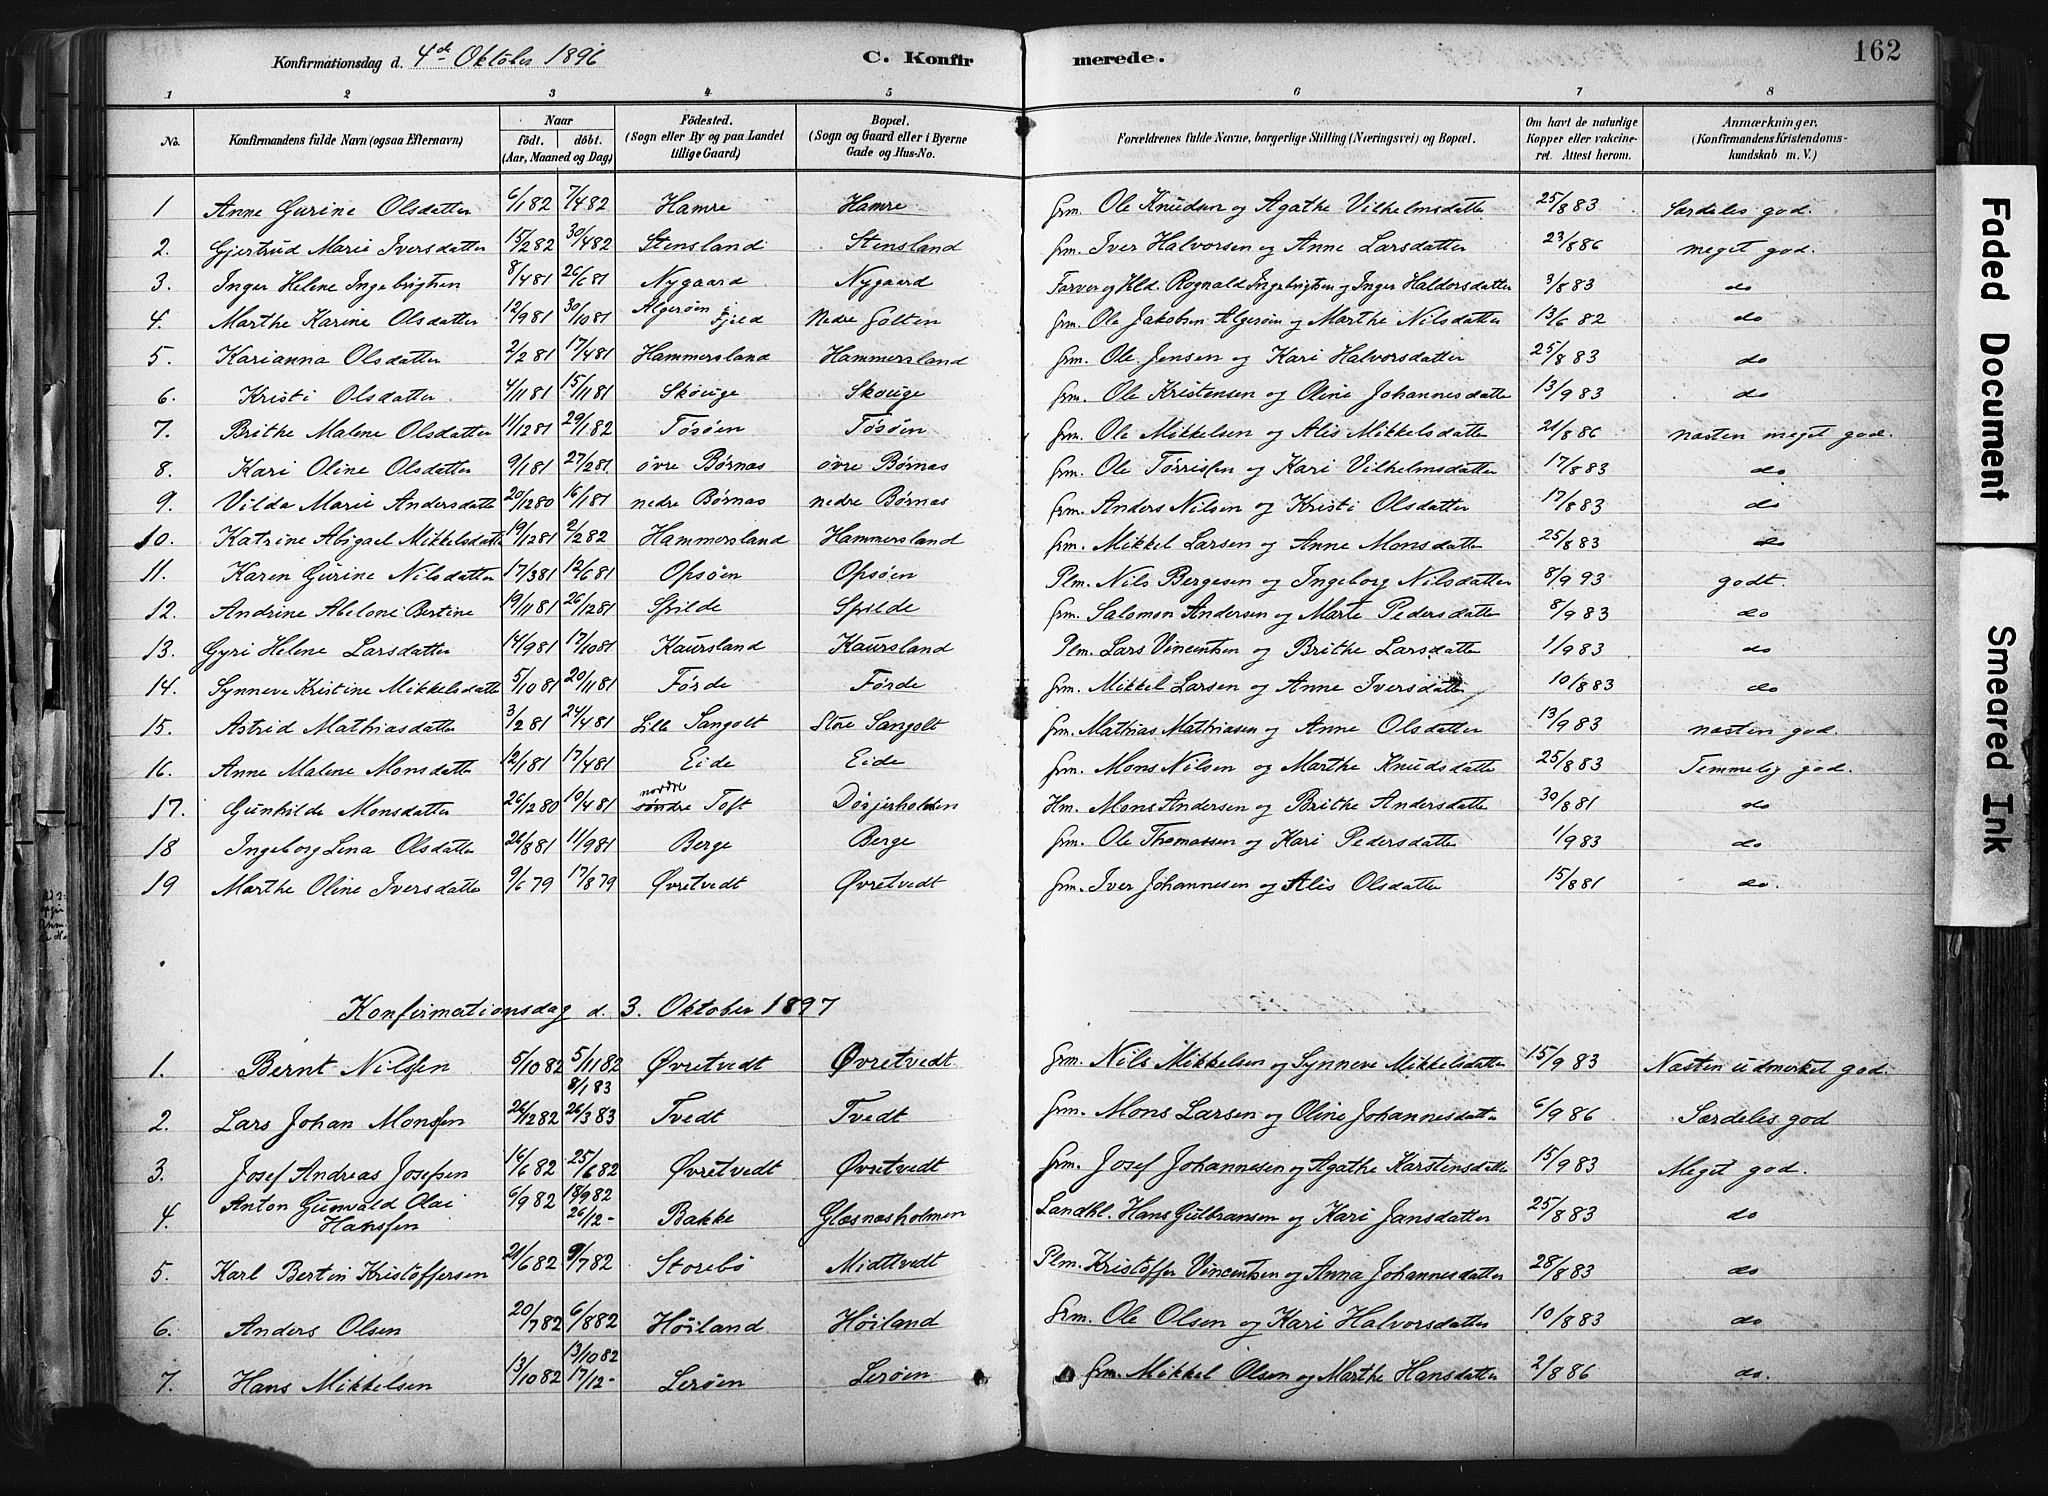 Konfirmationsdag d. 4de Oktober 1896 C. Konfirmerede. 162
1 2 3 4 5 6 7 8
No. Konfirmandens fulde Navn (ogsaa Efternavn) Naar født. døbt. (Aar, Maaned og Dag) Fødested. (Sogn eller By og paa Landet tillige Gaard) Bopæl. (Sogn og Gaard eller i Byerne Gade og Hus-No. Forældrenes fulde Navne, borgerlige Stilling (Næringsvei) og Bopæl. Om havt de naturlige Kopper eller vakcineret. Attest herom. Anmærkninger. (Konfirmandens Kristendomskundskab m. V.)
1 Anne Gurine Olsdatter 6/1 82 7/4 82 Hamre Hamre Grm. Ole Knudsen og Agathe Vilhelmsdatter 25/8 83 Særdeles god.
2. Gjertrud Marie Iversdatter 15/2 82 30/4 82 Stensland Stensland Grm. Iver Halvorsen og Anne Larsdatter 23/8 86 meget god.
3. Inger Helene Ingebrigtsen 8/4 81 26/6 81 Nygaard Nygaard Farver og Hld. Rognald Ingebrigtsen og Inger Haldorsdatter 3/8 83 do
4. Marthe Karine Olsdatter 12/9 81 30/10 81 Algerøen i Fjeld Nedre Golten Grm. Ole Jakobsen Algerøen og Marthe Nilsdatter 13/6 82 do
5. Karianna Olsdatter 2/2 81 17/4 81 Hammersland Hammersland Grm. Ole Jensen og Kari Halvorsdatter 25/8 83 do
6. Kristi Olsdatter 4/11 81 15/11 81 Skouge Skouge Grm. Ole Kristensen og Oline Johannesdatter 13/9 83 do
7. Brithe Malene Olsdatter 11/12 81 29/1 82 Tøsøen Tøsøen Grm. Ole Mikkelsen og Alis Mikkelsdatter 21/8 86 næsten meget god.
8. Kari Oline Olsdatter 9/1 81 27/2 81 øvre Børnæs øvre Børnæs Grm. Ole Tørrisen og Kari Vilhelmsdatter 17/8 83 do
9. Vilda Marie Andersdatter 20/12 80 16/1 81 nedre Børnæs nedre Børnæs Grm. Anders Nilsen og Kristi Olsdatter 17/8 83 do
10. Katrine Abigael Mikkelsdatter 19/12 81 2/2 82 Hammersland Hammersland Grm. Mikkel Larsen og Anne Monsdatter 25/8 83 do
11. Karen Gurine Nilsdatter 17/3 81 12/6 81 Opsøen Opsøen Plm. Nils Bergesen og Ingeborg Nilsdatter 8/9 93 godt.
12. Andrine Abelone Bertine 19/11 81 26/12 81 Spilde Spilde Grm. Salomon Andersen og Marte Pedersdatter 8/9 83 do
13. Gyri Helene Larsdatter 14/9 81 17/10 81 Kaursland Kaursland Plm. Lars Vincentsen og Brithe Larsdatter 1/9 83 do
14. Synneve Kristine Mikkelsdatter 5/10 81 20/11 81 Førde Førde Grm. Mikkel Larsen og Anne Iversdatter 10/8 83 do
15. Astrid Mathiasdatter 3/2 81 24/4 81 Lille Sangolt Store Sangolt Grm. Mathias Mathiasen og Anne Olsdatter 13/9 83 næsten god.
16. Anne Malene Monsdatter 12/1 81 17/4 81 Eide Eide Grm. Mons Nilsen og Marthe Knudsdatter 25/8 83 Temmelig god.
17. Gunhilde Monsdatter 26/12 80 10/4 81 nordre søndre Toft Døsjerholden Hm. Mons Andersen og Brithe Andersdatter 30/8 81 do
18 Ingeborg Lena Olsdatter 26/8 81 11/9 81 Berge Berge Grm. Ole Thomassen og Kari Pedersdatter 1/9 83 do
19 Marthe Oline Iversdatter 9/6 79 17/8 79 Øvretvedt Øvretvedt Grm. Iver Johannesen og Alis Olsdatter 15/8 81 do.
Konfirmationsdag d. 3. Oktober 1897
1. Bernt Nilssen 5/10 82 5/11 82 8/1 83 Øvretvedt Øvretvedt Grm. Nils Mikkelsen og Synneve Mikkelsdatter 15/9 83 Næsten udmerket god.
2. Lars Johan Monssen 26/12 82 26/3 83 Tvedt Tvedt Grm. Mons Larsen og Oline Johannesdatter 6/9 86 Særdeles god
3. Josef Andreas Josefsen 16/6 82 25/6 82 Øvretvedt Øvretvedt Grm. Josef Johannesen og Agathe Karstensdatter 15/9 83 Meget god.
4. Anton Gunvald Olai Hanssen 6/9 82 18/9 82 26/12 - Bakke Glæsnæsholmen Landhl. Hans Gulbransen og Kari Jansdatter 25/8 83 do
5. Karl Bertin Kristoffersen 21/6 82 9/7 82 Storebø Midttvedt Plm. Kristoffer Vincentsen og Anna Johannesdatter 28/8 83 do
6. Anders Olsen 20/7 82 6/8 82 Høiland Høiland Grm. Ole Olsen og Kari Halvorsdatter 10/8 83 do
7. Hans Mikkelsen 13/10 82 13/10 82 17/12 - Lerøen Lerøen Grm. Mikkel Olsen og Marthe Hansdatter 2/8 86 do.
Faded Document
Smeared Ink